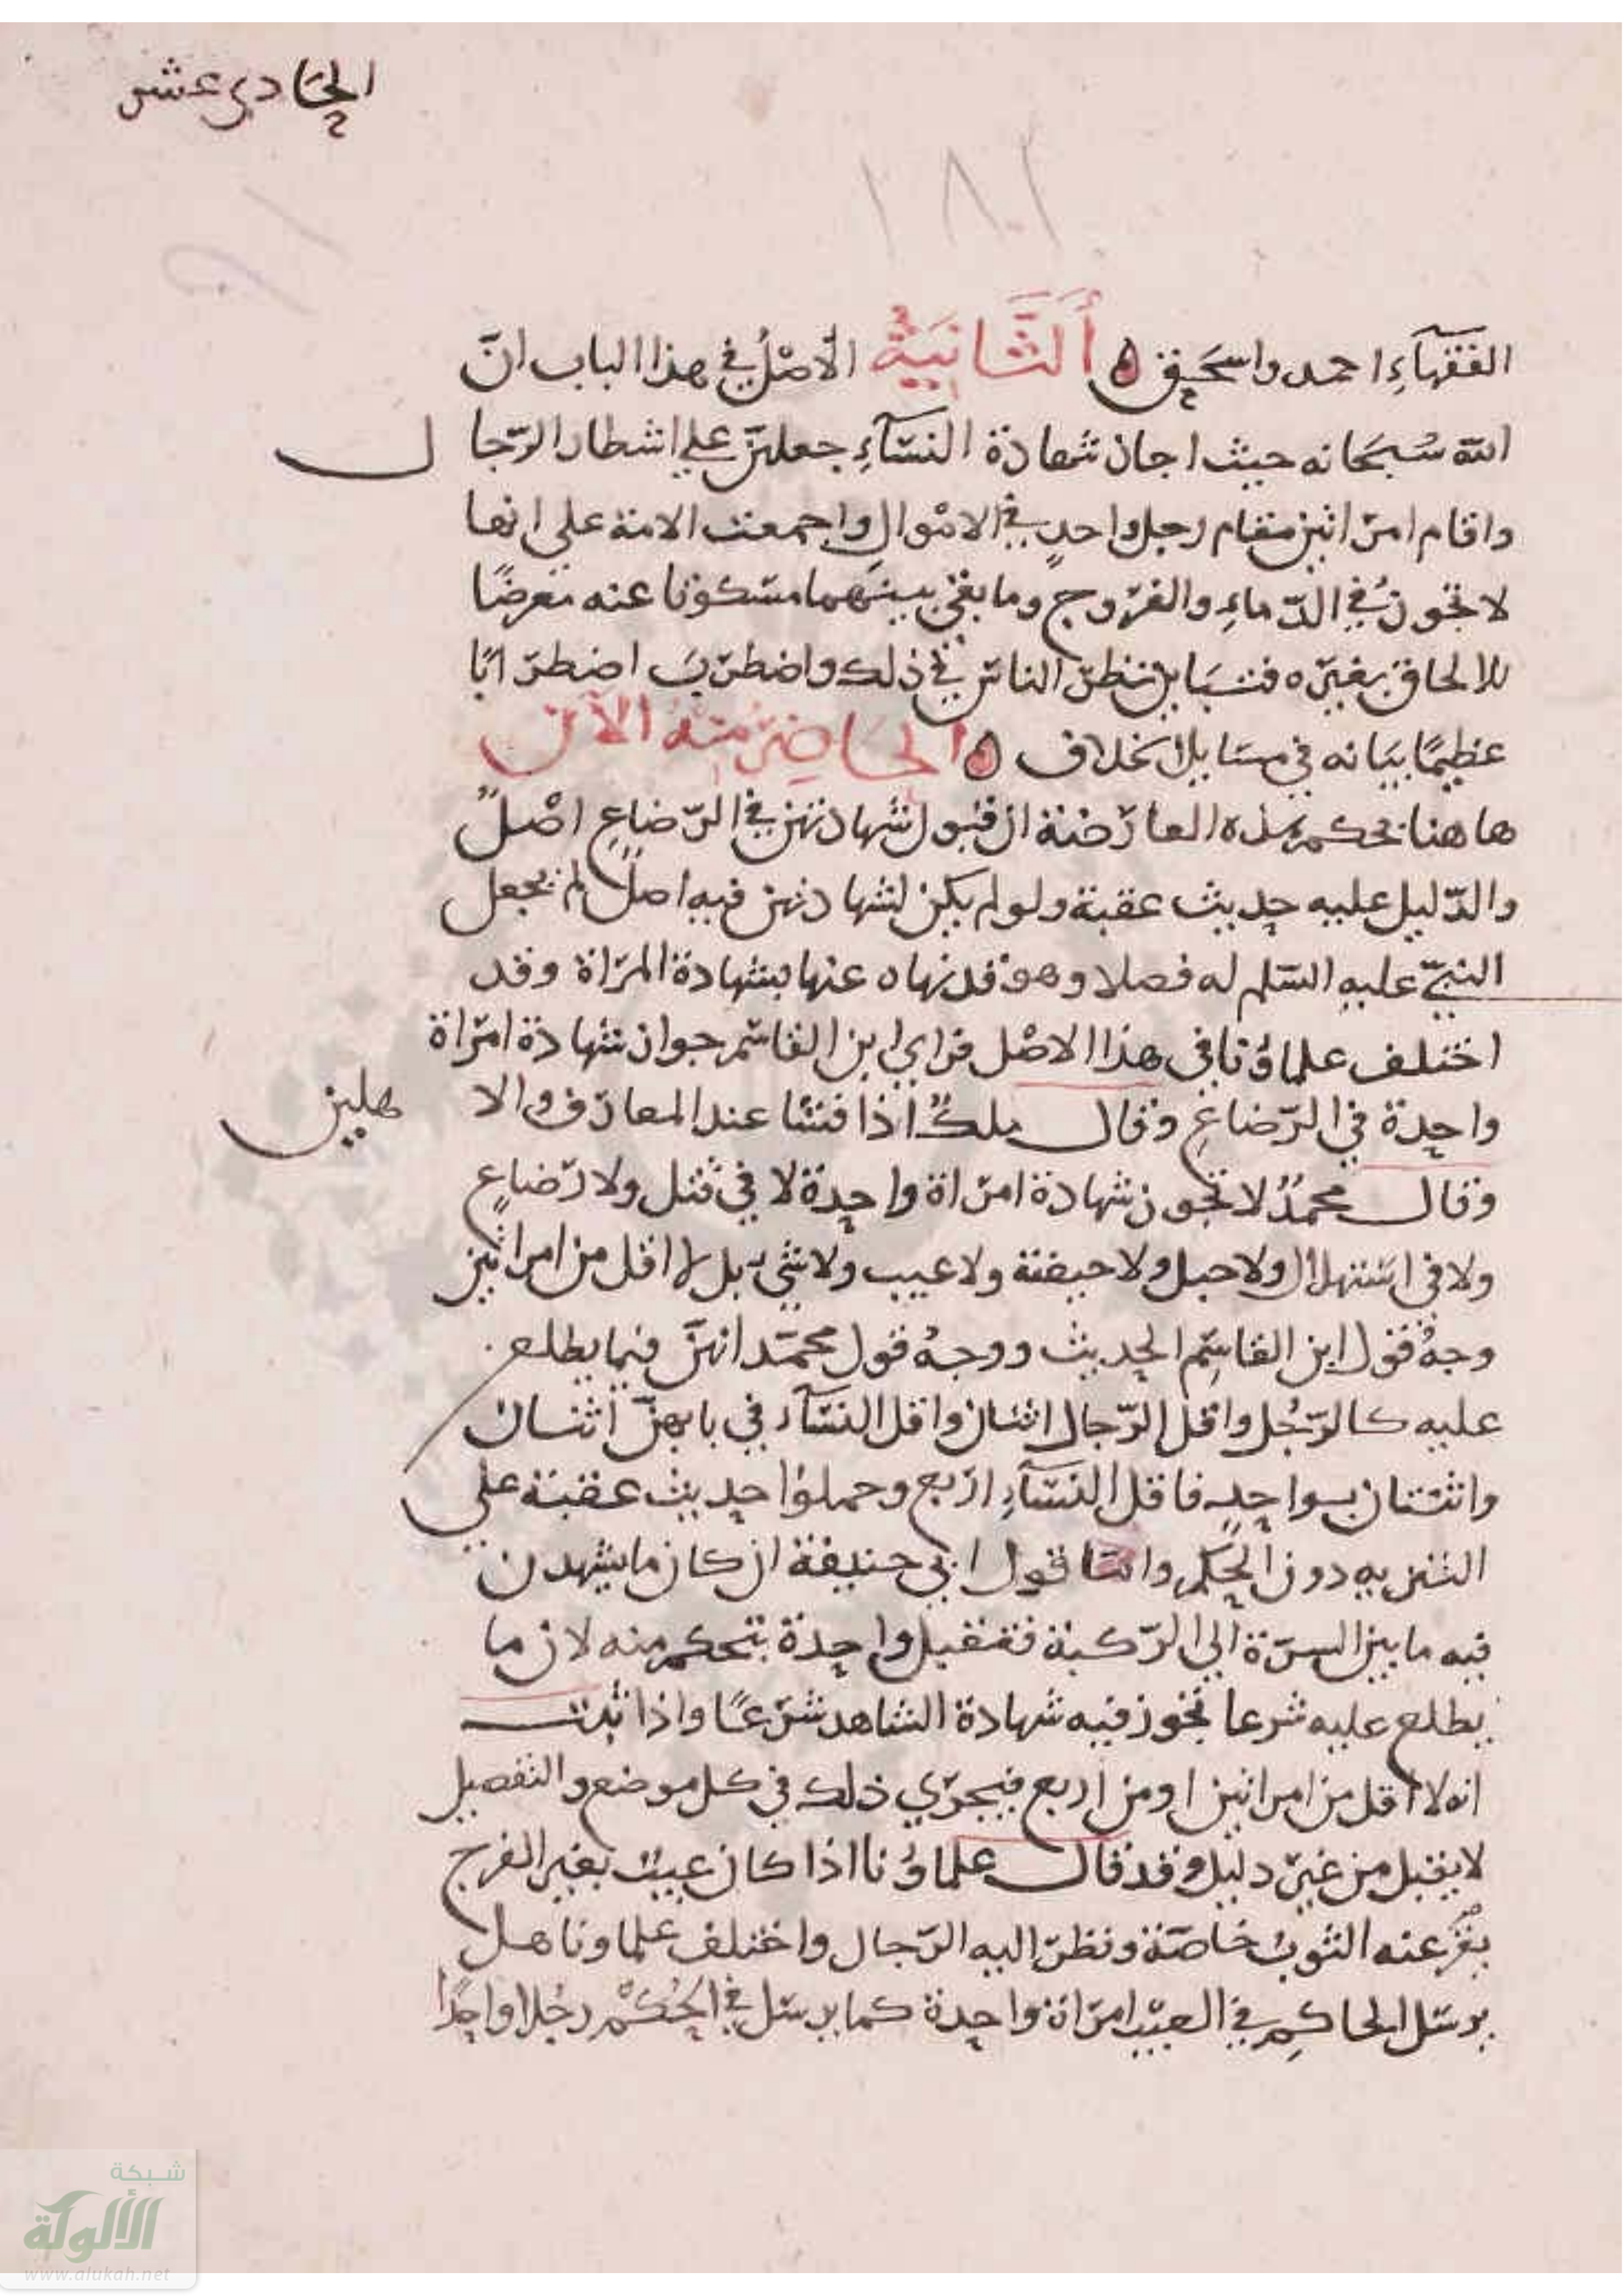 الحادي عشر
١٨٢
الفقهآءِ احمد واسحق ه أَلثَّانيَةُ الأصْلُ في هذا الباب انّ
الله سُبحَانه حيث اجاز شهادة النسّآءِ جعلهنّ علي اشطار الرّجال
واقام امرَاتين مقام رجل واحدٍ في الامْوالِ واجمعت الامة علي انها
لا تجوزُ في الدّماءِ والفرُوج وما بقي بينَهما مسكوتا عنه معرضًا
للالحاق بغيرِه فتبَاين نظرُ الناسِ في ذلك واضطربَ اضطرَابًا
عظيمًا بيَانه في مسَايل الخلاف ه الحَاضِرُ منهُ الآن
هاهنا بحكم هذه العارضة ان قبول شهادتهن في الرّضاعِ اصْلٌ
والدّليل عليه حديث عقبة ولو لم يكن لشهادتهن فيه اصلٌ لم يجعل
النبيّ عليهِ السّلم له فصلا وهو قد نهاه عنها بشهادة المرْاة وقد
اختلف علماؤُنا في هذا الاصْل فراي ابن القاسم جواز شهادة امرْاة
واحدة في الرّضاعِ وقال ملكٌ اذا فشا عند المعارف والاهلين
وقال محمدٌ لا تجوز شهادة امرْاة واحدة لا في قتل ولا رَضاعٍ
ولا في استهلال ولا حبل ولا حيضة ولا عيب ولا شيء بل لا اقل من امراتين
وجهُ قول ابن القاسِم الحديث ووجهُ قول محمّد انهنّ فيما يطلع
عليه كالرّجُل واقل الرّجال اثنان واقل النسّآءِ في بابهنّ اثنسان
واثنتان بواحدٍ فاقل النسّآءِ ارْبع وحملوُا حديث عقبَة علي
التنزيه دون الحكم وامّا قول ابي حنيفة ان كان ما يشهدن
فيه ما بين السرّة الي الرّكبة فتقبل واحدة بتحكم منه لان ما
يطلع عليه شرعا تجوز فيه شهادة الشاهد شرْعًا واذا ثبت
انه لا اقل من امراتين او من اربع فيجرْي ذلك في كل موضع والتفصيل
لا يقبل من غيرِ دليل وقد قال علماؤُنا اذا كان عيبٌ بغير الفرج
بقرَ عنه الثوبُ خاصّة ونظرَ اليه الرّجال واختلف علماونا هل
يرسل الحاكِم في العيْب امرَاة واحدة كما يرسل في الحُكْم رجُلا واحدًا
شبكة
الألوكة
www.alukah.net